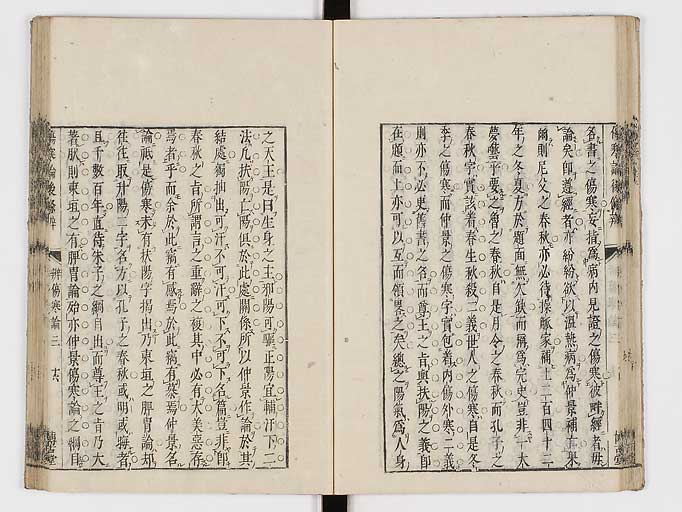 名書之傷寒妄指為病內見證之傷寒彼畔經者毋
論矣即遵經者亦紛紛欲以溫熱病為仲景補直
爾則尼父之春秋亦必待操觚家補上二百四十二
年之冬夏方於題面無欠缺而稱為完史豈非大
夢囈乎要之魯之春秋自是月令之春秋而孔子之
春秋字實該着春生秋殺二義世人之傷寒自是冬
季之傷寒而仲景之傷寒字實包着內傷外寒二義
則亦不必更舊書之名而尊王之旨與扶陽之義即
在題面上亦可以互而領畧之矣總之陽氣為人身
之天王是曰生身之主邪陽可驅正陽宜輔汗下二
法凡扶陽亡陽俱於此處關係所以仲景作論於其
結處獨抽出可汗不可汗可下不可下名篇豈非即
春秋之旨所謂言之重辭之複其中必有大美惡存
焉者乎而余於此竊有感焉於此竊有慕焉仲景名
論祗是傷寒末有扶陽字揭出乃東垣之脾胃論却
往往取升陽二字名方以孔子之春秋或明或晦者
且千數百年直待朱子之綱目出而尊王之旨乃大
著朕則東垣之有脾胃論殆亦仲景傷寒論之綱目
傷寒論後條辨
辨傷寒論三
十六